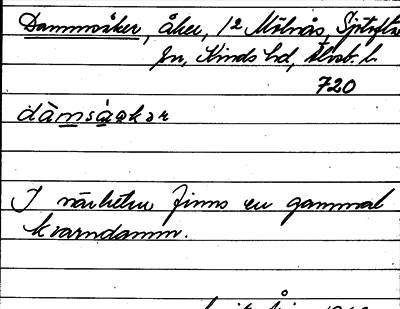 Dammsåker, åker, 1 2 Mölnås, Sjötofta
sn, Kinds hd, Älvsb. l.
720
dàmsåkər
I närheten finns en gammal
kvarndamm.